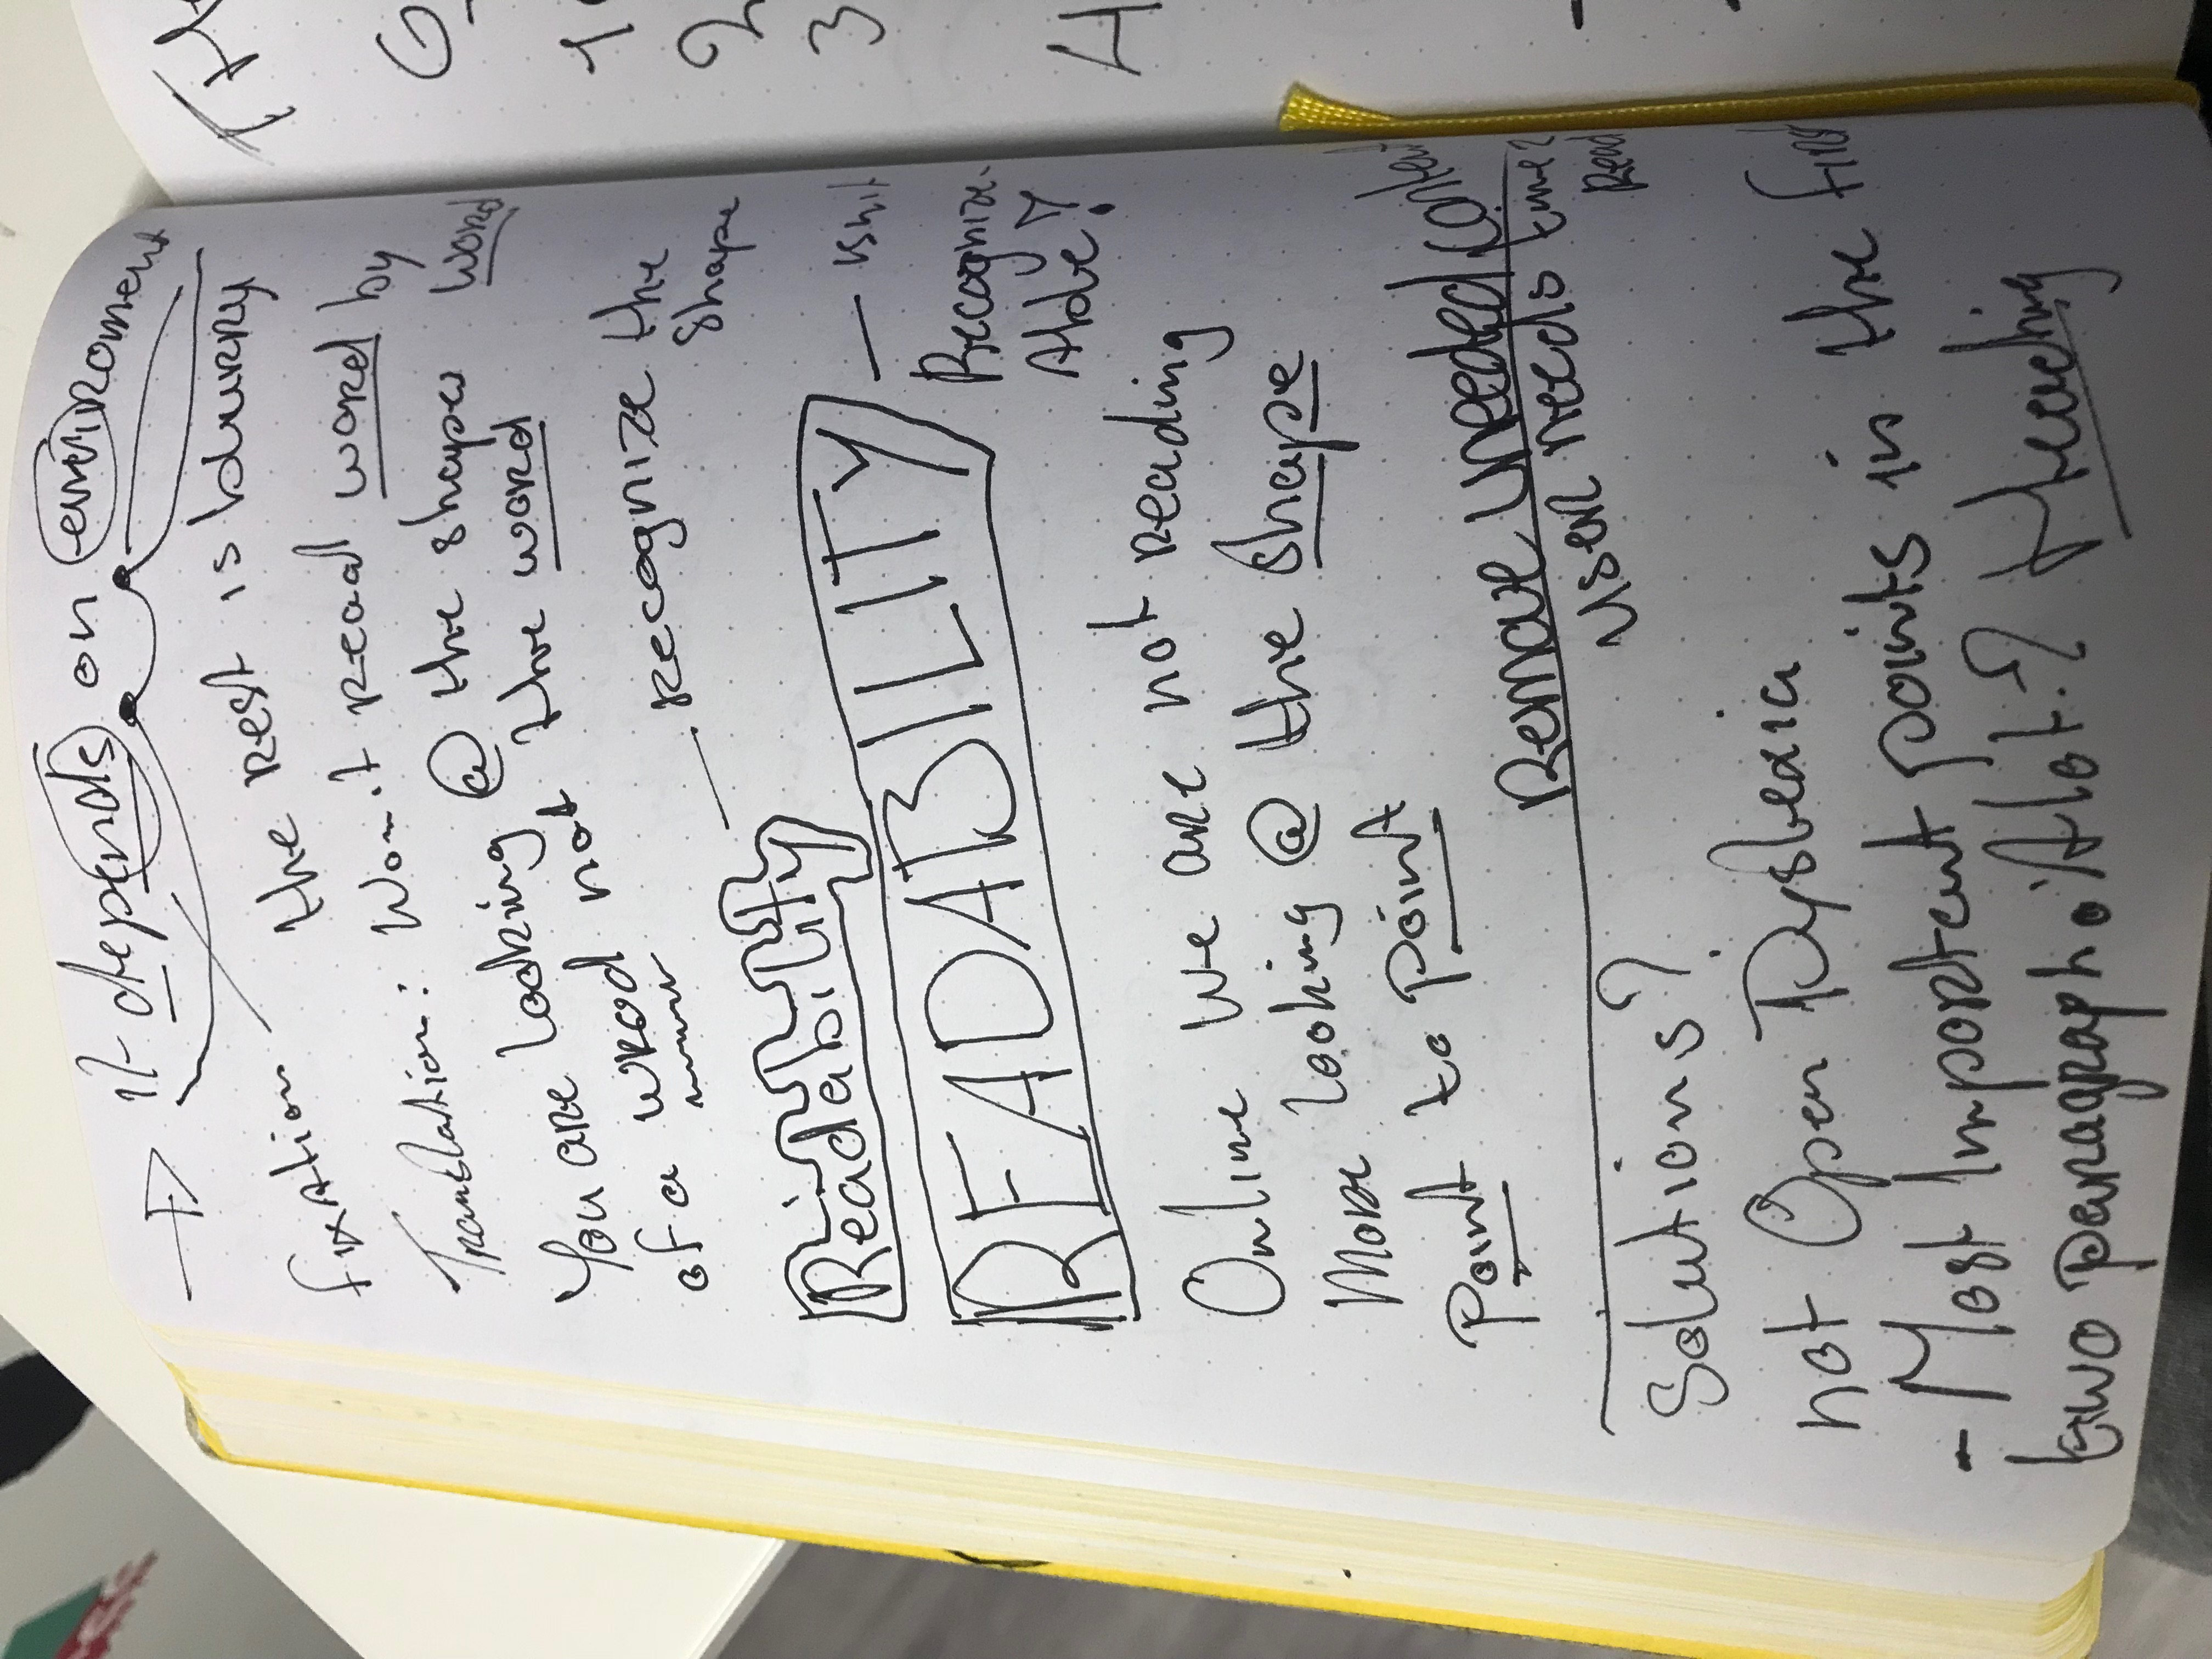 it depends on enviroment
fixation
the rest is blurry
Translation: Won't read word by
word
You are looking @ the shapes
of a wrod not the word
recognize the
shape
Readability
READABILITY
isn't
Recognize-
Able?
Online we are not reading
More looking @ the shape
Point to Point
Remove Uneeded content
user needs time 2
Read
Solutions?
not Open Dyslexia
- Most Important points in the first
two paragraph. A lot.? Heading
TH
G
1
2
3
4